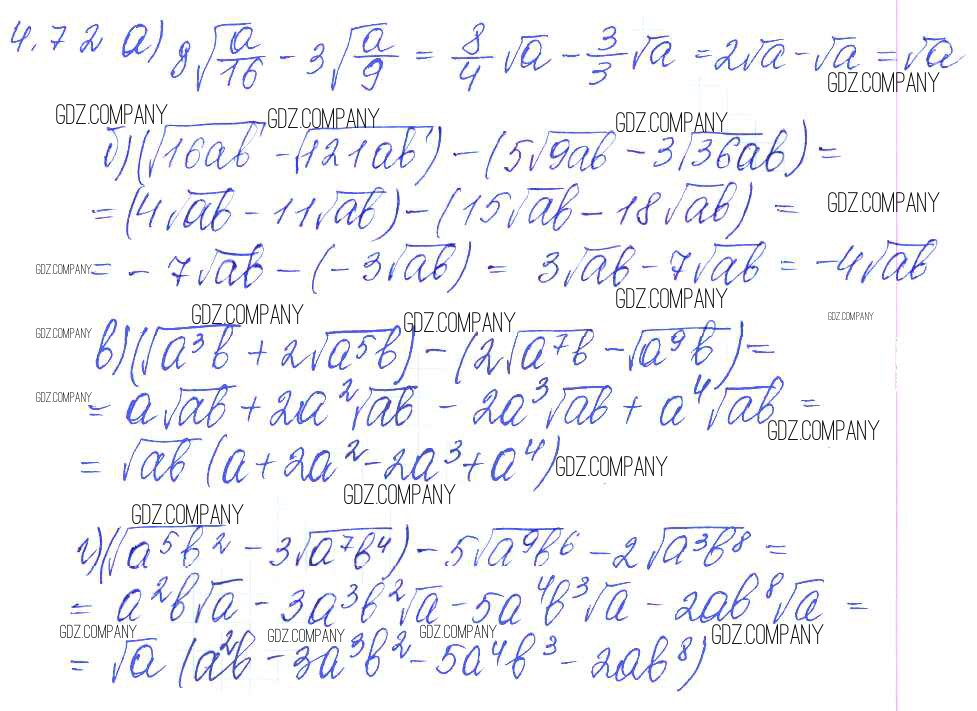 4.72 а) 8√(a/16) - 3√(a/9) = 8/4 √a - 3/3 √a = 2√a - √a = √a
GDZ.COMPANY
GDZ.COMPANY GDZ.COMPANY GDZ.COMPANY
б) (√16ab - √121ab) - (5√9ab - 3√36ab) =
= (4√ab - 11√ab) - (15√ab - 18√ab) = GDZ.COMPANY
GDZ.COMPANY = - 7√ab - (-3√ab) = 3√ab - 7√ab = -4√ab
GDZ.COMPANY
GDZ.COMPANY GDZ.COMPANY GDZ.COMPANY
GDZ.COMPANY в) (√a³b + 2√a⁵b) - (2√a⁷b - √a⁹b) =
GDZ.COMPANY = a√ab + 2a²√ab - 2a³√ab + a⁴√ab =
GDZ.COMPANY
= √ab (a + 2a² - 2a³ + a⁴) GDZ.COMPANY
GDZ.COMPANY
GDZ.COMPANY
г) (√a⁵b² - 3√a⁷b⁴) - 5√a⁹b⁶ - 2√a³b⁸ =
= a²b√a - 3a³b²√a - 5a⁴b³√a - 2ab⁸√a =
GDZ.COMPANY GDZ.COMPANY GDZ.COMPANY GDZ.COMPANY
= √a (a²b - 3a³b² - 5a⁴b³ - 2ab⁸)